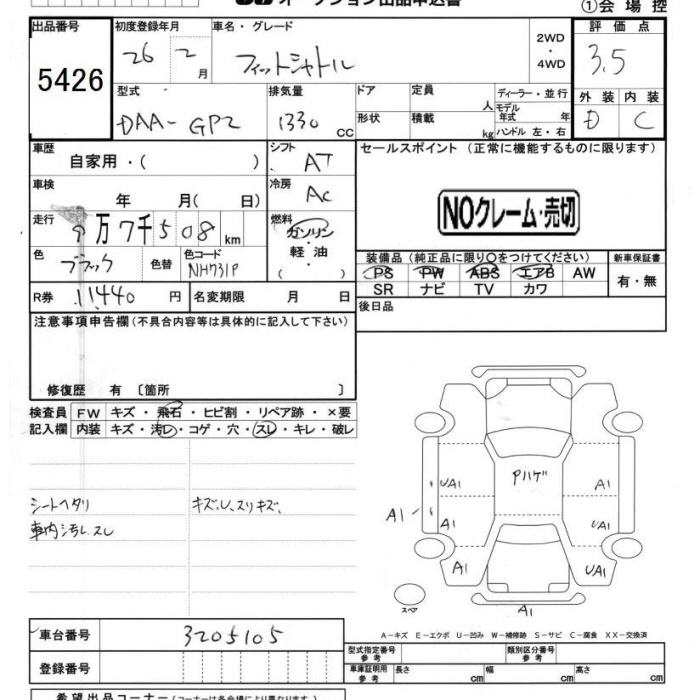 オークション出品申込書
①会場控
出品番号 初度登録年月 車名・グレード 評価点
5426 26 2月 フィットシャトル 2WD・4WD 3.5
型式 排気量 ドア 定員 人 ディーラー・並行 外装 内装
DAA-GP2 1330 CC 形状 積載 kg モデル年式 年 D C
ハンドル 左・右
車歴 自家用・( ) シフト AT セールスポイント (正常に機能するものに限ります)
車検 年 月( 日) 冷房 AC
NOクレーム・売切
走行 9万7千508km 燃料 ガソリン・軽油・( )
色 ブラック 色替 色コード NH731P 装備品 (純正品に限り○をつけてください) 新車保証書
PS PW ABS エアB AW 有・無
SR ナビ TV カワ
R券 11440円 名変期限 月 日 後日品
注意事項申告欄 (不具合内容等は具体的に記入して下さい)
修復歴 有 〔箇所 〕
検査員 FW キズ・飛石・ヒビ割・リペア跡・×要
記入欄 内装 キズ・汚レ・コゲ・穴・スレ・キレ・破レ
シートヘタリ キズ、U、スリキズ、
車内汚レ、スレ
Pハゲ
UA1 A1
A1 A1 UA1
A1 UA1
スペア A1
A-キズ E-エクボ U-凹み W-補修跡 S-サビ C-腐食 XX-交換済
車台番号 3205105 型式指定番号 参考 類別区分番号 参考
登録番号 車庫証明用 参考 長さ cm 幅 cm 高さ cm
希望出品コーナー (コーナーは各会場により異なります。)